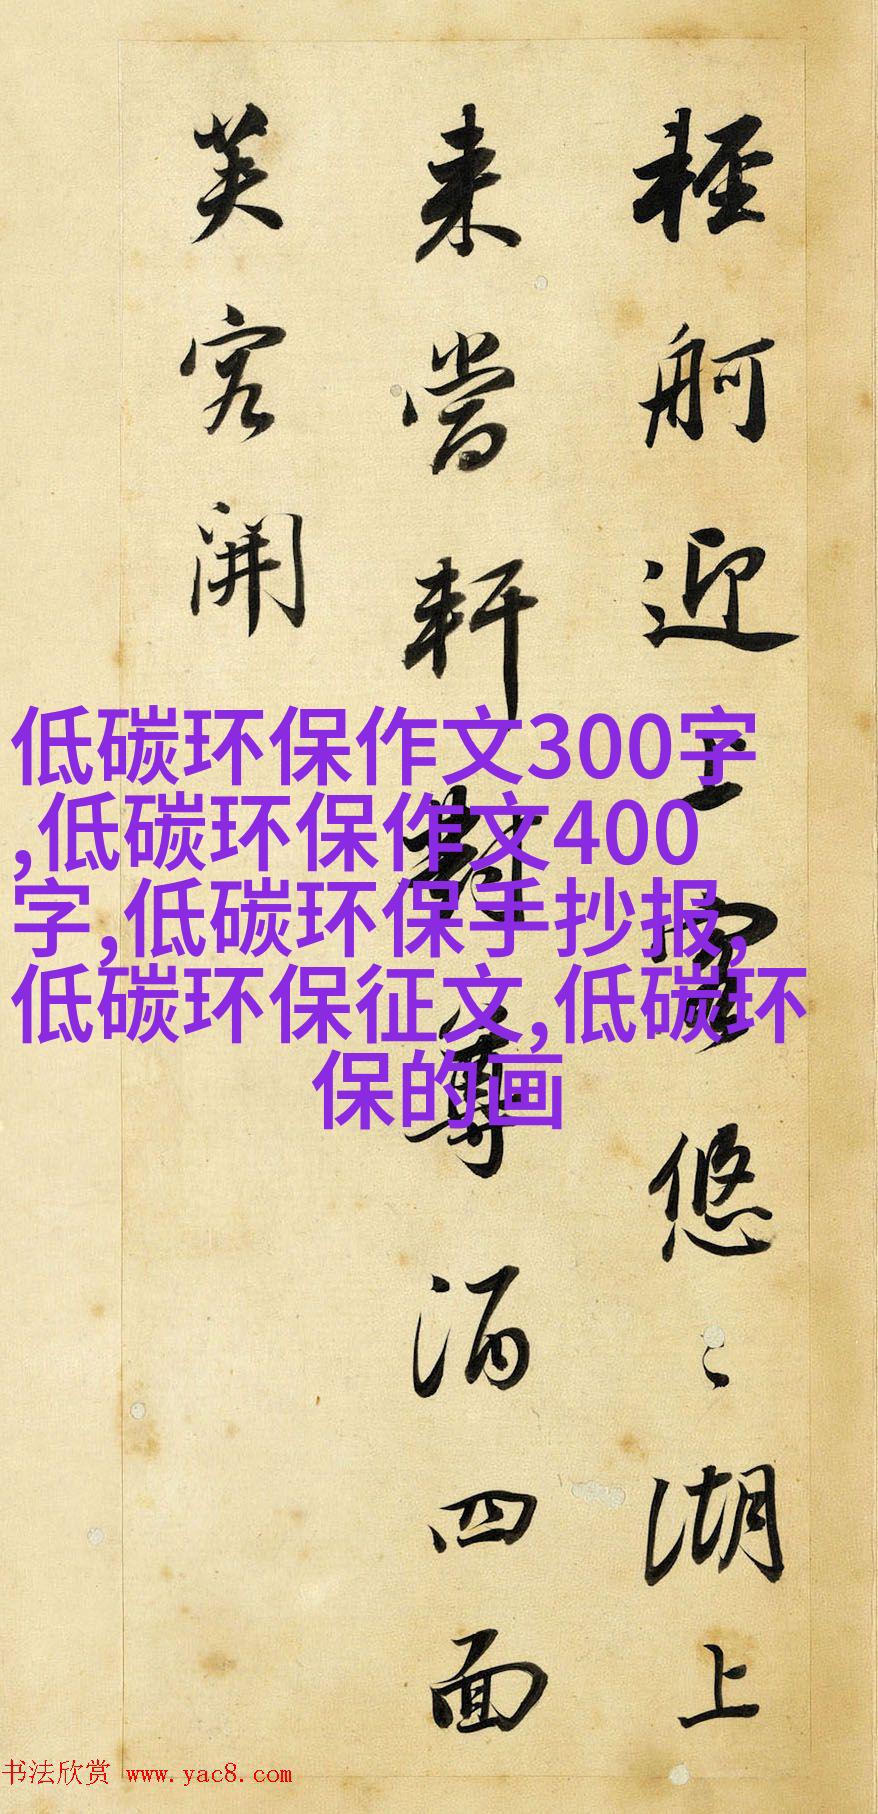 輕舸迎上客悠〻湖上
来當軒對尊酒四面
芙容開
低碳环保作文300字
,低碳环保作文400
字,低碳环保手抄报,
低碳环保征文,低碳环
保的画
书法欣赏 www.yac8.com